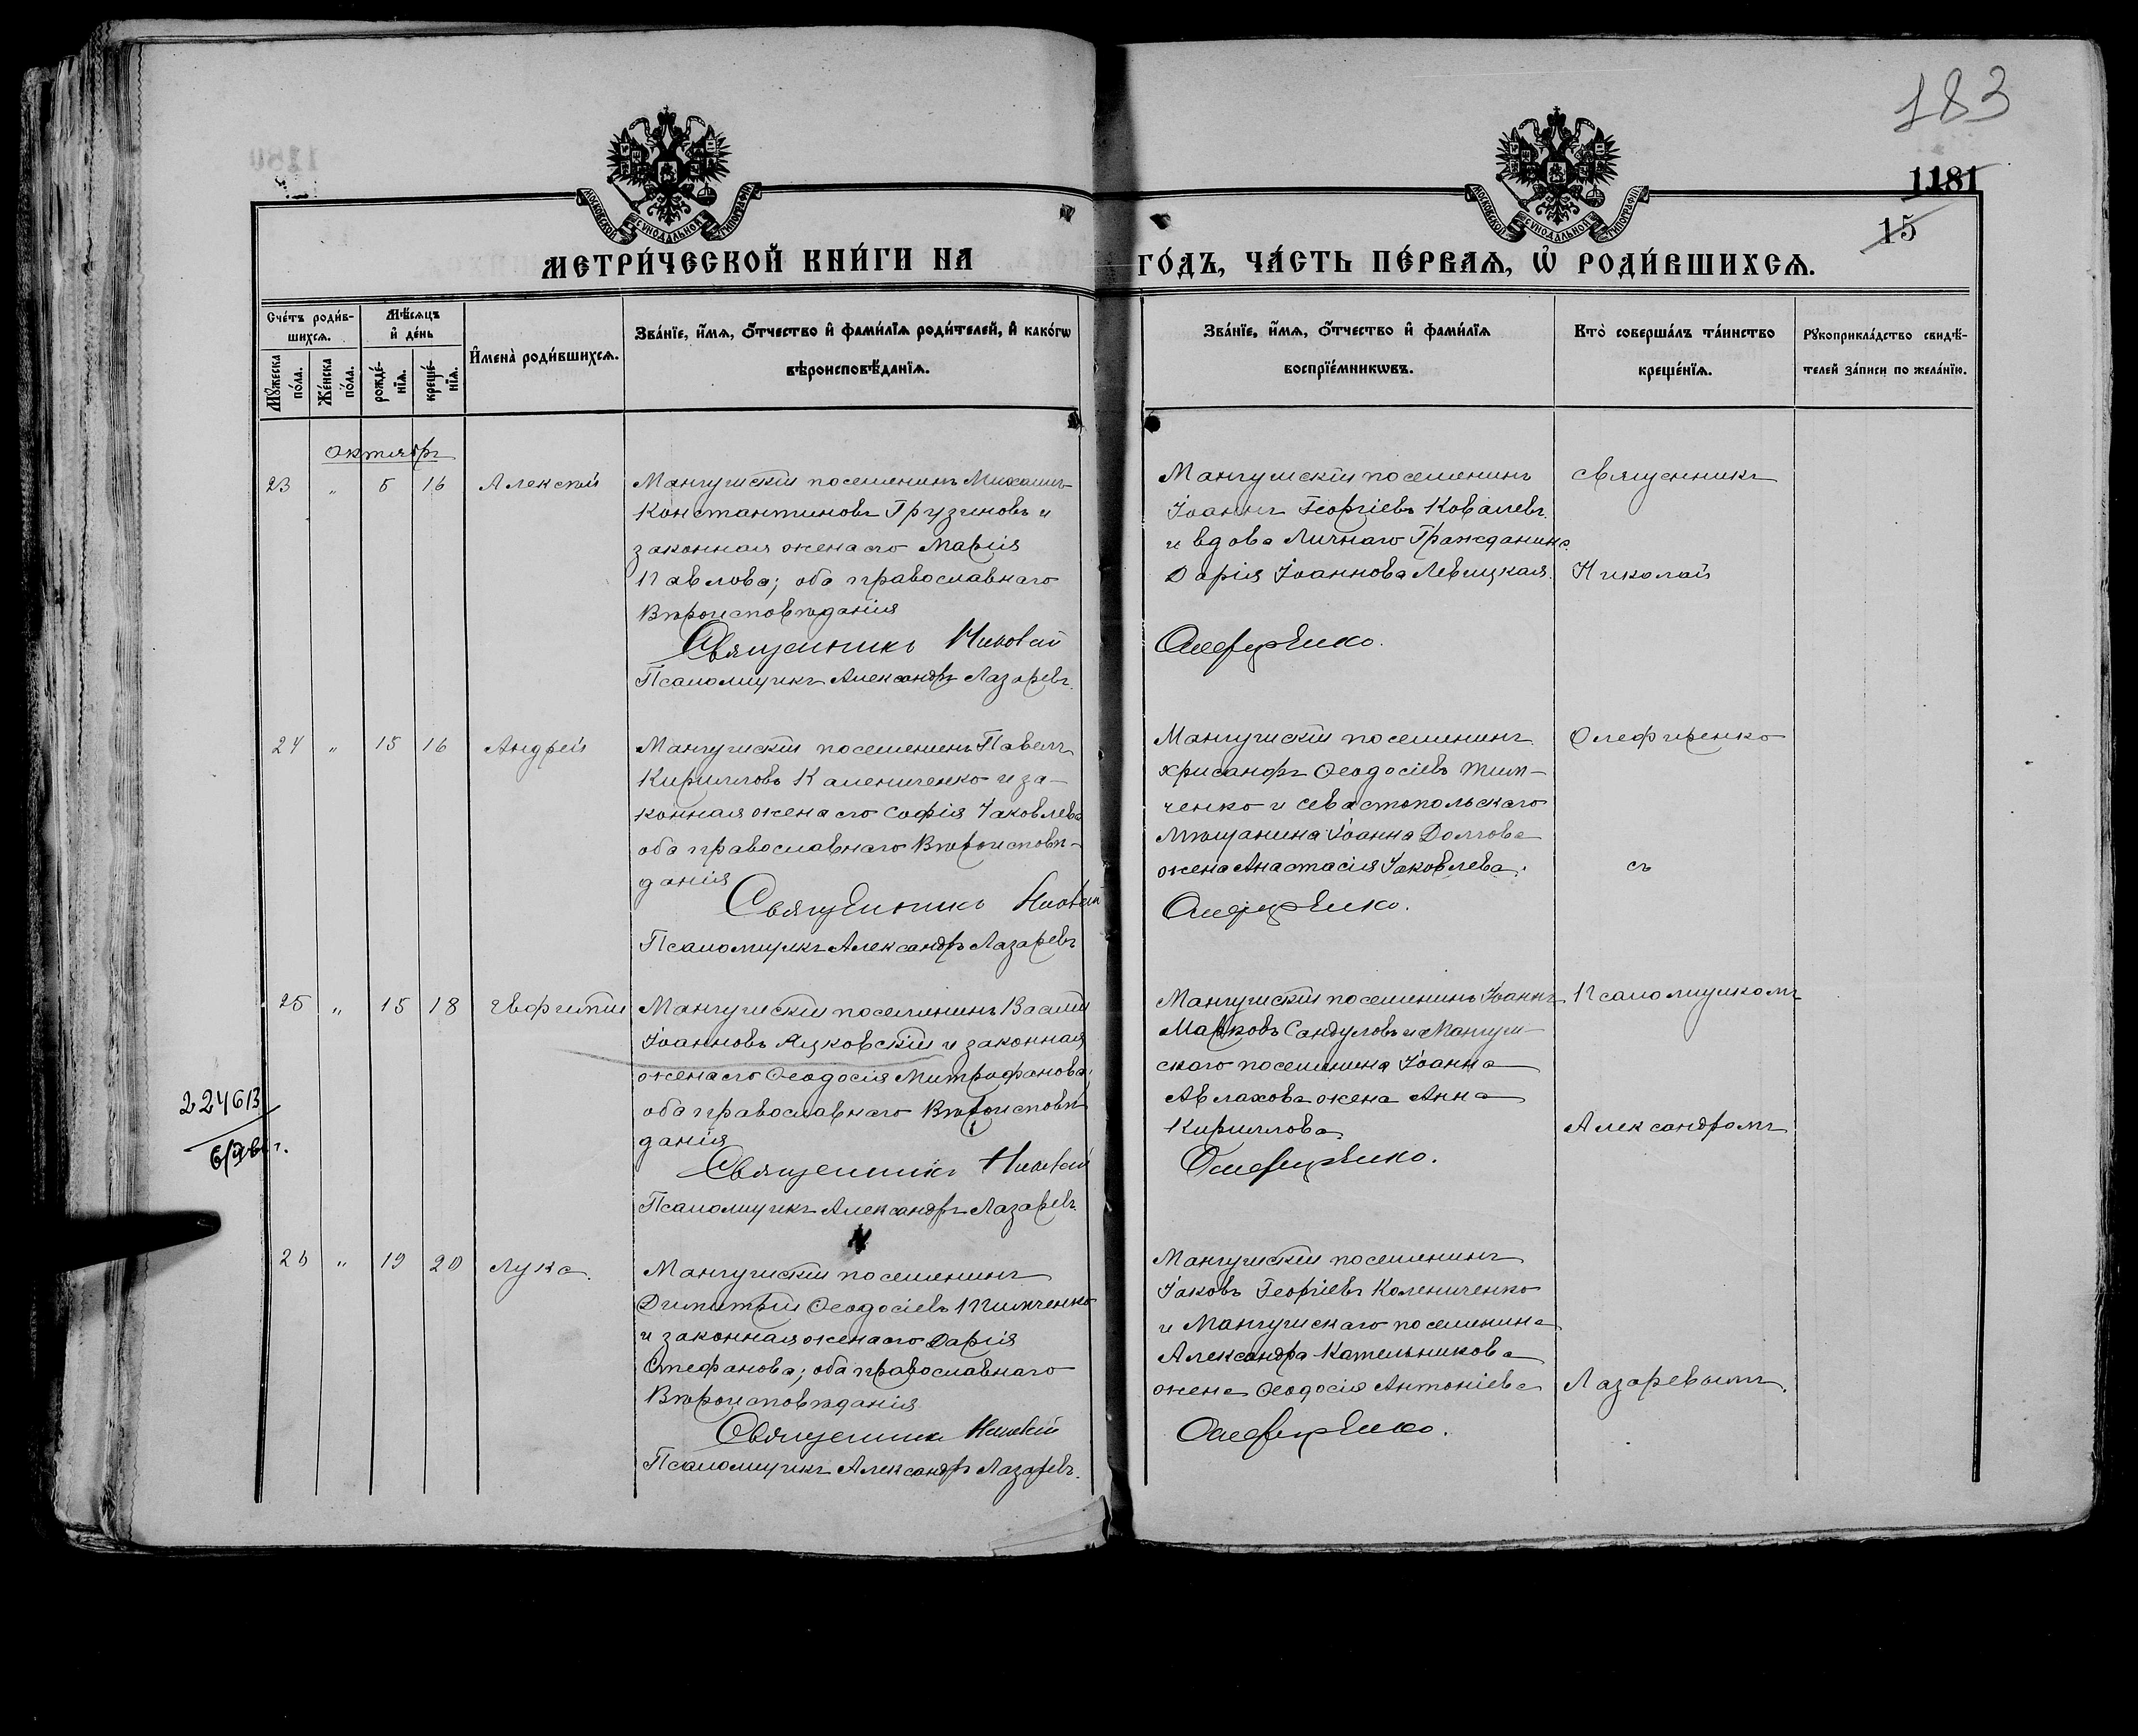 183
1181
15
МОСКОВСКОЙ СѴНОДАЛЬНОЙ ТИПОГРАФІИ
МОСКОВСКОЙ СѴНОДАЛЬНОЙ ТИПОГРАФІИ
МЕТРИ́ЧЕСКОЙ КНИ́ГИ НА ГО́ДЪ, ЧА́СТЬ ПЕ́РВАѦ, Ѡ҆ РОДИ́ВШИХСѦ.
Сче́тъ роди́в-
шихсѧ.
Мꙋ́жеска по́ла.
Же́нска по́ла.
Мѣ́сѧцъ
и҆ де́нь
рожде́-нїѧ.
креще́-нїѧ.
И҆мена̀ роди́вшихсѧ.
Зва́нїе, и҆́мѧ, ѻ҆́тчество и҆ фами́лїѧ роди́телей, и҆ како́гѡ
вѣроисповѣ́данїѧ.
Зва́нїе, и҆́мѧ, ѻ҆́тчество и҆ фами́лїѧ
воспрїе́мникѡвъ.
Кто̀ соверша́лъ та́инство
креще́нїѧ.
Рꙋкоприкла́дство свидѣ́-
телей за́писи по жела́нїю.
Октябрь
23 " 5 16 Алексѣй
Мангушскій поселянинъ Михаилъ
Константиновъ Грузиновъ и
законная жена его Марія
Павлова; оба православнаго
Вѣроисповѣданія
Священникъ Николай
Псаломщикъ Александръ Лазаревъ.
Мангушскій поселянинъ
Іоаннъ Георгіевъ Ковалевъ
и вдова Личнаго Гражданина
Дарія Іоаннова Левицкая.
Олефиренко.
Священникъ
Николай
24 " 15 16 Андрей
Мангушскій поселянинъ Павелъ
Кирилловъ Калениченко и за-
конная жена его Софія Іаковлева
оба православнаго Вѣроисповѣ-
данія
Священникъ Николай
Псаломщикъ Александръ Лазаревъ
Мангушскій поселянинъ
Хрисанфъ Ѳеодосіевъ Тим-
ченко и Севастопольскаго
мѣщанина Іоанна Долгова
жена Анастасія Іаковлева.
Олефиренко.
Олефиренко
съ
25 " 15 18 Евфимій
Мангушскій поселянинъ Василій
Іоанновъ Яцковскій и законная
жена его Ѳеодосія Митрофанова;
оба православнаго Вѣроисповѣ-
данія
Священникъ Николай
Псаломщикъ Александръ Лазаревъ.
Мангушскій поселянинъ Іоаннъ
Марковъ Сандуловъ и Мангуш-
скаго поселянина Іоанна
Авлахова жена Анна
Кириллова.
Олефиренко.
Псаломщикомъ
Александромъ
26 " 19 20 Лука.
Мангушскій поселянинъ
Димитрій Ѳеодосіевъ Тимченко
и законная жена его Дарія
Стефанова; оба православнаго
Вѣроисповѣданія
Священникъ Николай
Псаломщикъ Александръ Лазаревъ.
Мангушскій поселянинъ
Іаковъ Георгіевъ Калениченко
и Мангушскаго поселянина
Александра Кательникова
жена Ѳеодосія Антоніева
Олефиренко.
Лазаревымъ.